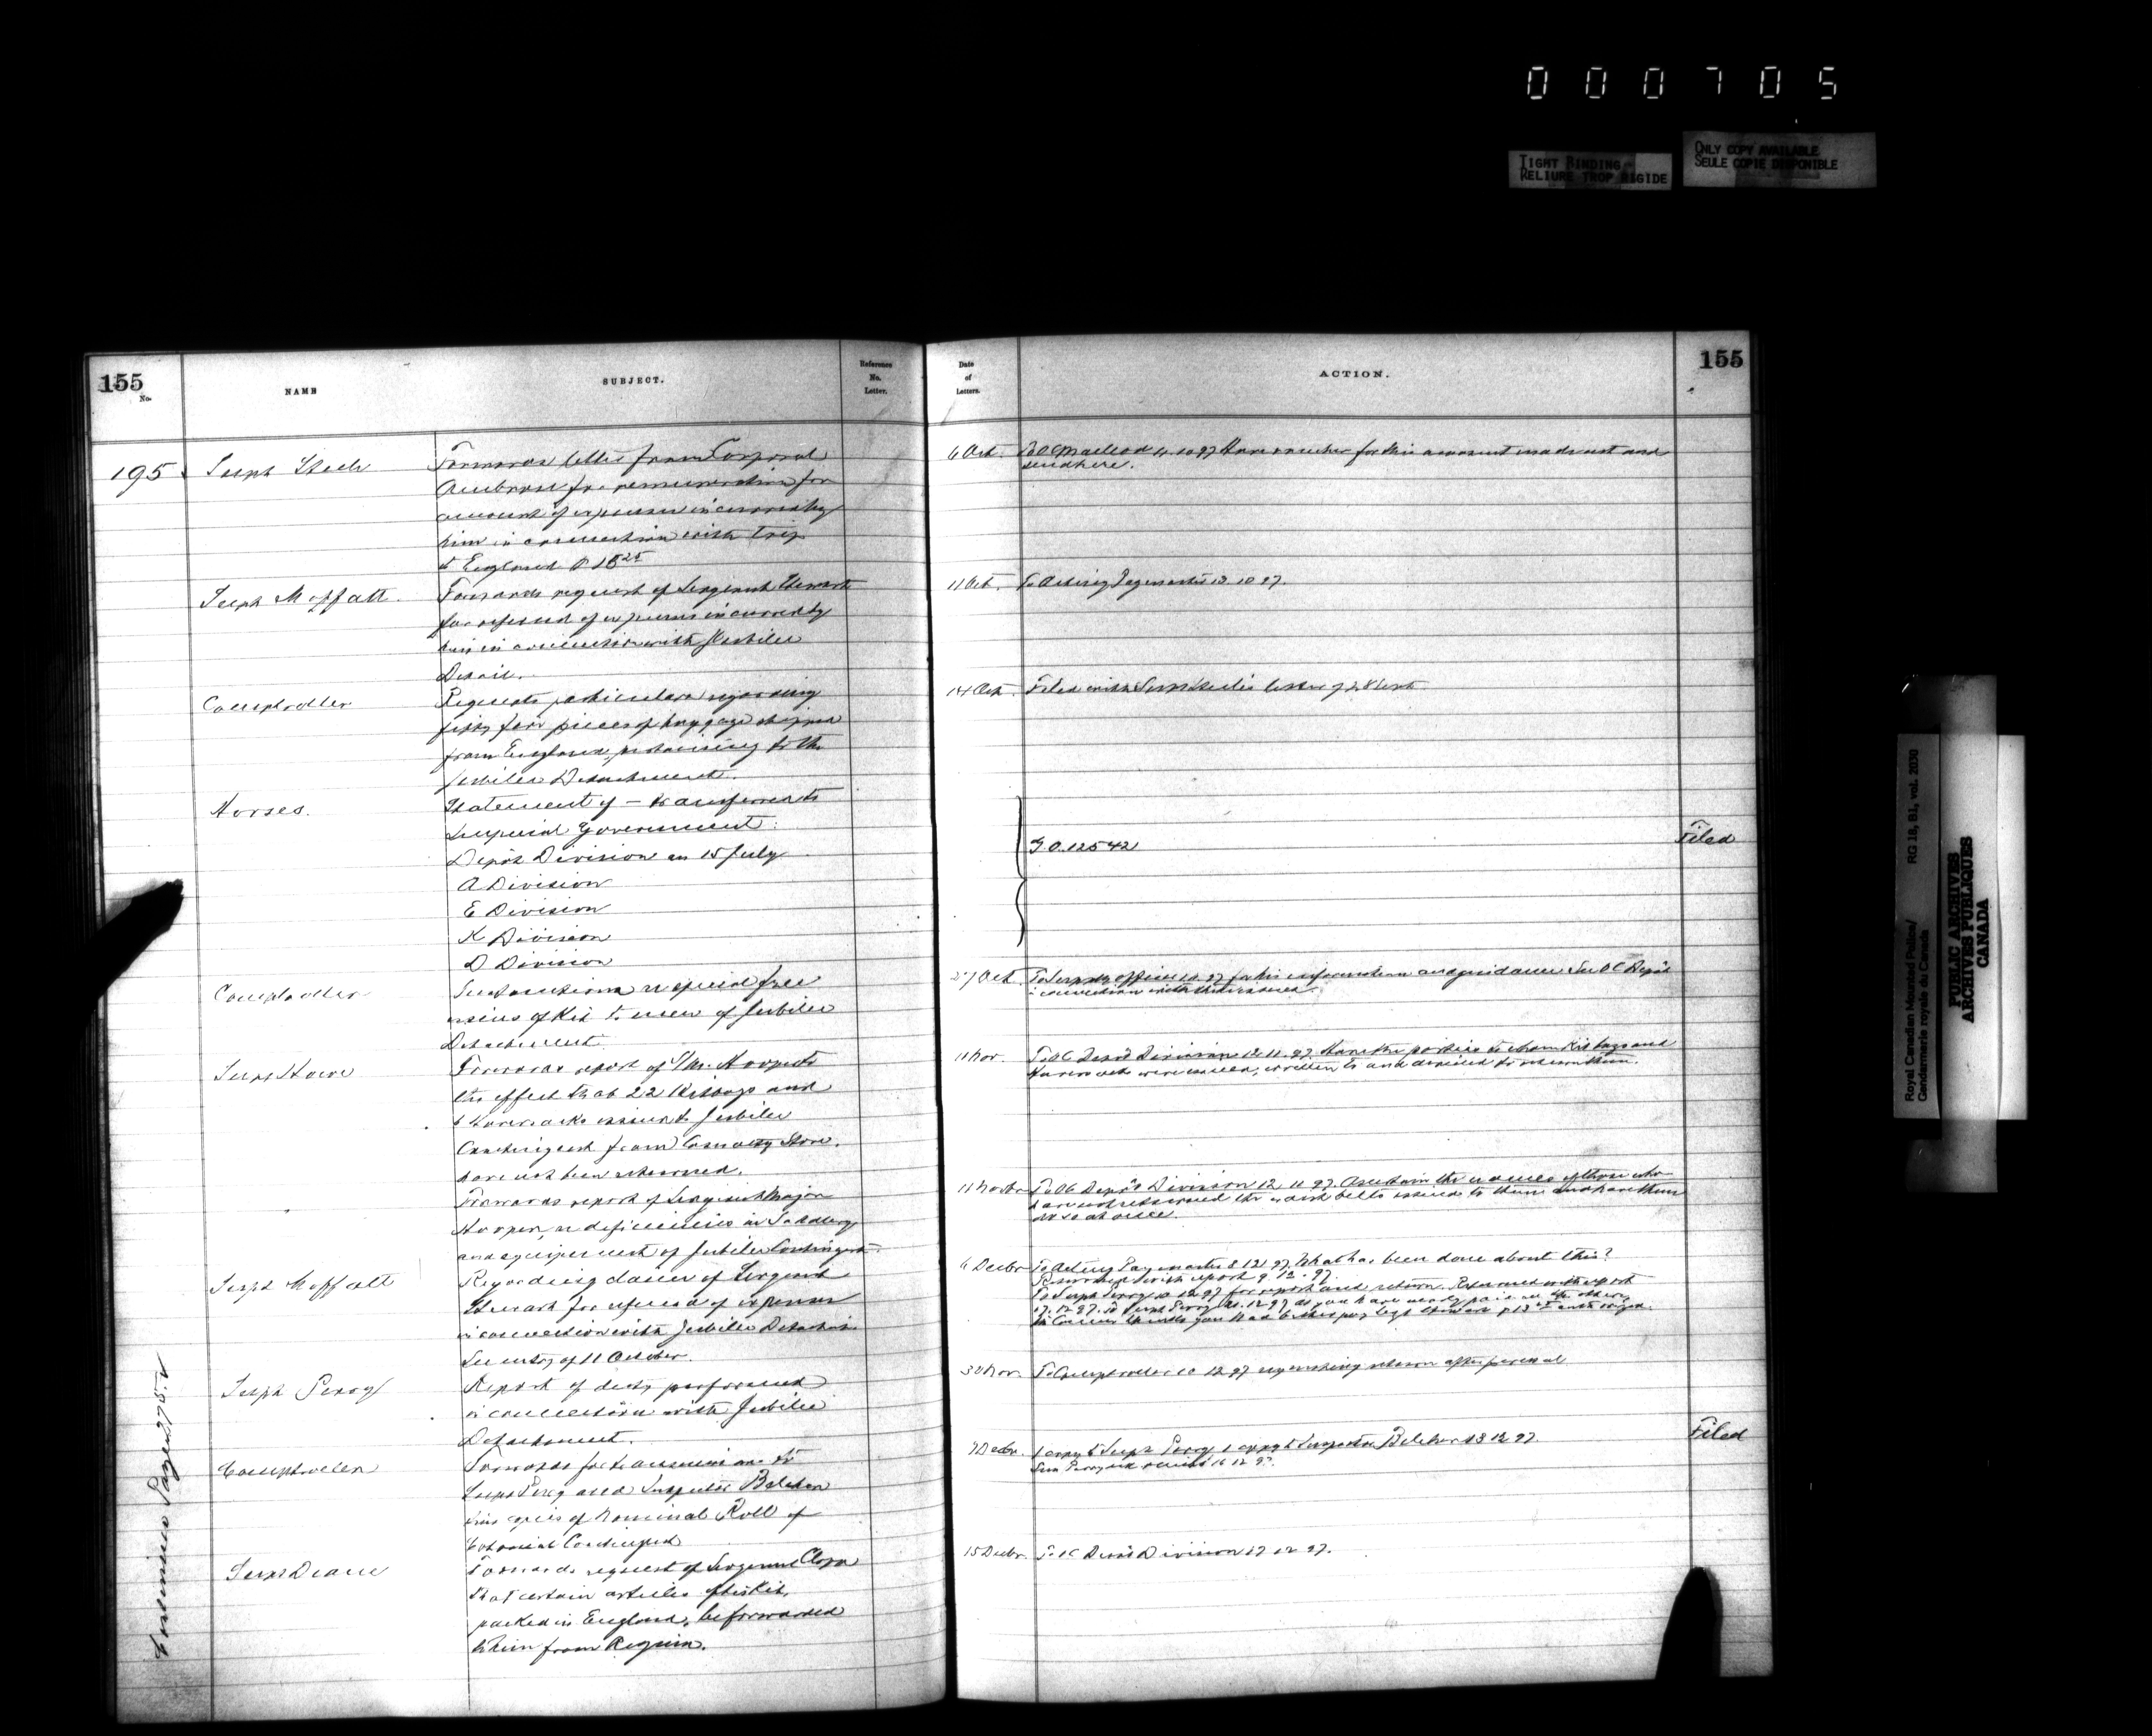 000705
TIGHT BINDING
RELIURE TROP RIGIDE
ONLY COPY AVAILABLE
SEULE COPIE DISPONIBLE
155
No.
NAME
SUBJECT.
Reference
No.
Letter.
Date
of
Letters.
ACTION.
155
195
Supt Steele
Forwards letter from Corporal
for remuneration for
amount of expenses incurred by
him in connection with trip
to England $ 15 25
6 Oct.
To OC Macleod 10 97 Have voucher for this amount made out and
send here.
Supt Moffatt.
Forwards request of Sergeant Stewart
for refund of expenses incurred by
him in connection with Jubilee
Detail.
11 Oct.
To Acting Paymaster 13 10 97.
Comptroller
Requests particulars regarding
fifty four pieces of baggage shipped
from England, pertaining to the
Jubilee Detachment.
14 Oct.
Filed with Supt letter of 28 Sept
Horses.
Statement of - transferred to
Imperial Government:
Depôt Division on 15 July
A Division
E Division
K Division
D Division
G.O. 12542
Filed
Comptroller
Instructions re special free
issue of Kit to men of Jubilee
Detachment.
27 Oct.
To Supply officer 97 for his information and guidance
in connection with these issues.
Supt Howe
Forwards report of S.M. Hooper to
the effect that 22 Kitbags and
6 Haversacks issued to Jubilee
Contingent from Casualty Store,
have not been returned.
11 Nov.
To OC Depôt Division 12 11 97 Have the parties to whom Kit bags and
Haversacks were issued, written to and advised to return them.
Forwards report of Sergeant Major
Hooper, re deficiencies in Saddlery
and equipment of Jubilee Contingent.
11 Novbr
To OC Depôt Division 12 11 97. Ascertain the names of those who
have not returned the waist belts issued to them and have them
do so at once.
Supt Moffatt
Regarding claim of Sergeant
Stewart for refund of expenses
in connection with Jubilee Detachmt.
See entry of 11 October.
6 Decbr
To Acting Paymaster 8 12 97. What has been done about this?
Returned with report 9. 12. 97.
To Supt Perry 10 12 97 for report and return. Returned with report
17. 12. 97.
Supt Perry
Report of duty performed
in connection with Jubilee
Detachment.
30 Nov.
To Comptroller 10 12 97 requesting return after perusal
Comptroller
Forwards for transmission to
Supt Perry and Inspector Belcher
copies of Nominal Roll of
Colonial Contingent
7 Decbr.
1 copy to Supt Perry 1 copy to Inspector Belcher 13 12 97.
Filed
Supt Deane
Forwards request of Sergeant
that certain articles of his Kit,
packed in England, be forwarded
to him from Regina.
15 Decbr.
To OC Depôt Division 17 12 97.
Continued Page 975
Royal Canadian Mounted Police/
Gendarmerie royale du Canada
RG 18, B1, vol. 2030
PUBLIC ARCHIVES
ARCHIVES PUBLIQUES
CANADA